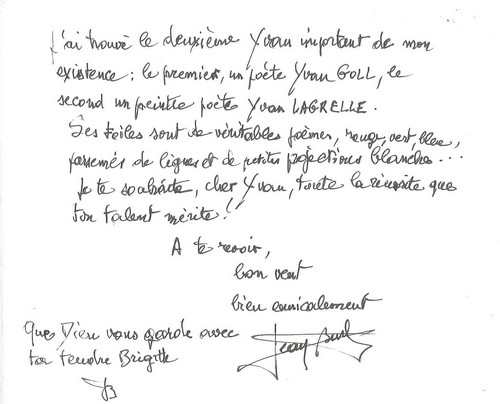 J'ai trouvé le deuxième Yvan important de mon
existence : le premier, un poète Yvan GOLL, le
second un peintre poète Yvan LAGRELLE.
Ses toiles sont de véritables poèmes, rouge, vert, bleu,
parsemés de lignes et de petites projections blanches...
Je te souhaite, cher Yvan, toute la réussite que
ton talent mérite !
A te revoir,
bon vent
bien amicalement
Que Dieu vous garde avec
ta tendre Brigitte
JB